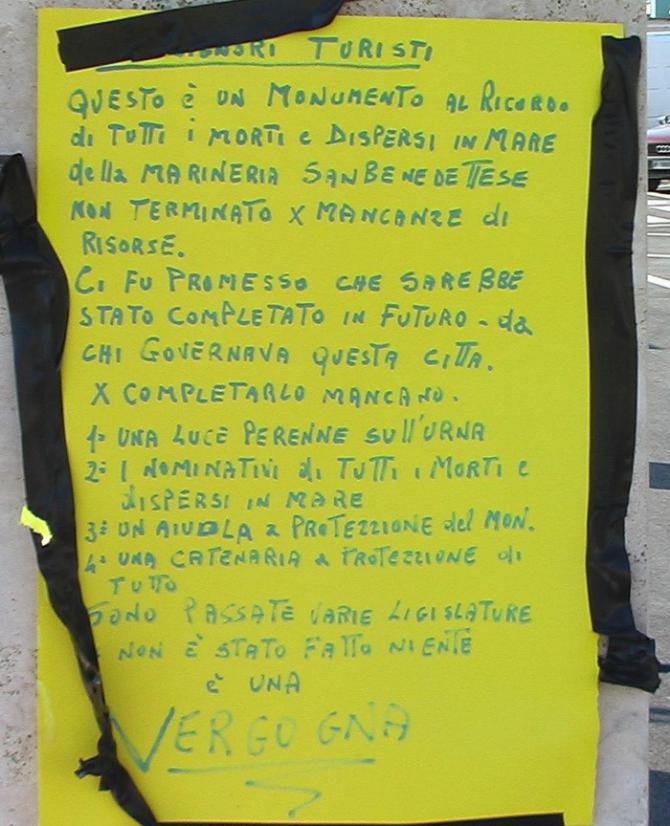 SIGNORI TURISTI
QUESTO è UN MONUMENTO AL RICORDO
di TUTTI i MORTI e DISPERSI IN MARE
della MARINERIA SANBENEDETTESE
NON TERMINATO X MANCANZE di
RISORSE.
CI FU PROMESSO CHE SAREBBE
STATO COMPLETATO IN FUTURO - da
CHI GOVERNAVA QUESTA CITTA.
X COMPLETARLO MANCANO.
1= UNA LUCE PERENNE SUll'URNA
2= I NOMINATIVI di TUTTI i MORTI e
DISPERSI IN MARE
3= UN AIUOLA a PROTEZZIONE del MON.
4= UNA CATENARIA a PROTEZZIONE di
TUTTO
SONO PASSATE VARIE LIGISLATURE
NON È STATO FATTO NIENTE
è UNA
VERGOGNA